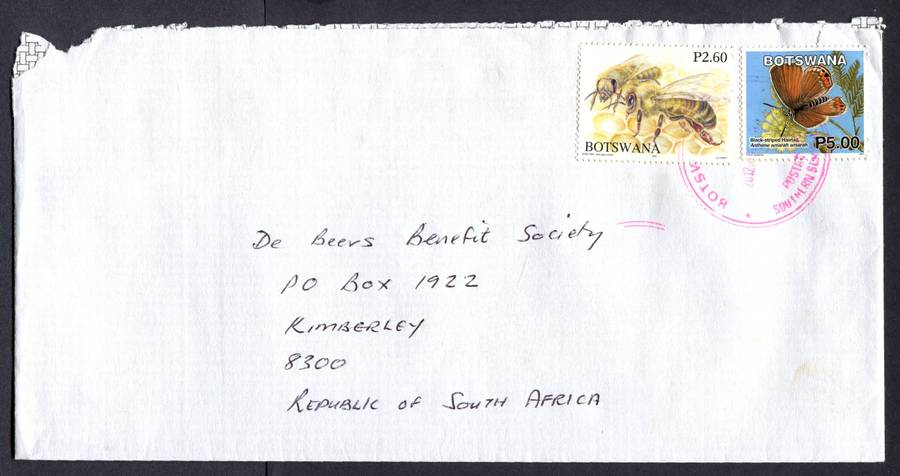 P2.60
BOTSWANA
BOTSWANA
Black-striped Hairtail,
Anthene amarah amarah
P5.00
BOTSW
POSTAL
SOUTHERN
De Beers Benefit Society
PO Box 1922
KIMBERLEY
8300
REPUBLIC OF SOUTH AFRICA